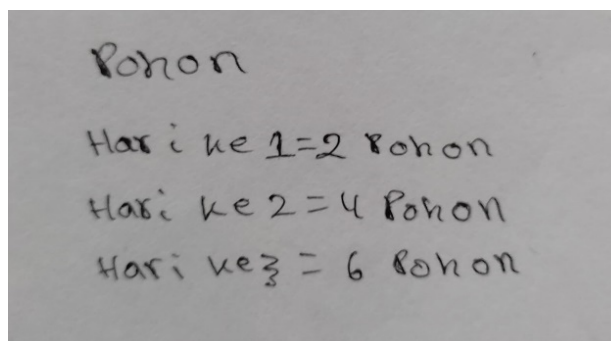 Pohon
Hari ke 1=2 Pohon
Hari ke 2=4 Pohon
Hari ke 3 = 6 Pohon